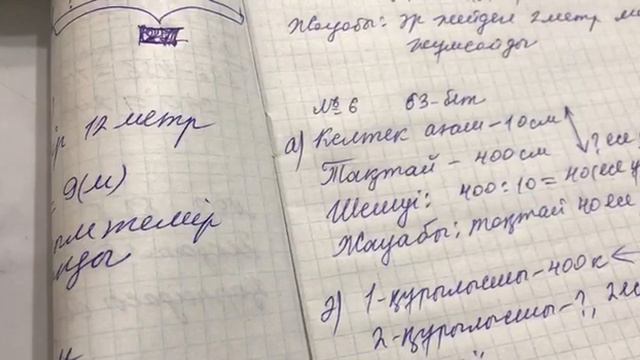 12 метр
9(м)
темір
Жауабы: Әр көйлек 2 метр
жұмсайды
№ 6 63-бет
а) Келтек ағаш - 10 см
Тақтай - 400 см ? есе
Шешуі: 400 : 10 = 40(есе
Жауабы: тақтай 40 есе
ә) 1-құрылысшы - 400 к
2-құрылысшы - ?, 2